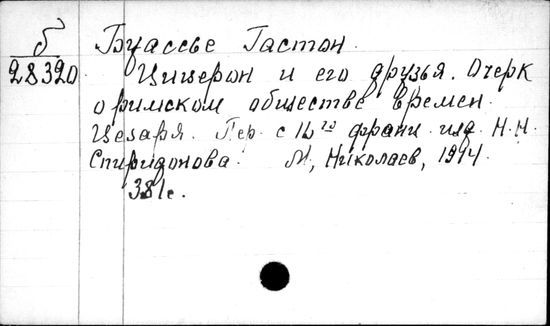 б
28320
Буассье Гастон.
Цицерон и его друзья. Очерк
о римском обществе времен
Цезаря. Пер. с 16го франц. изд. Н.Н.
Спиридонова. М, Николаев, 1914.
381с.